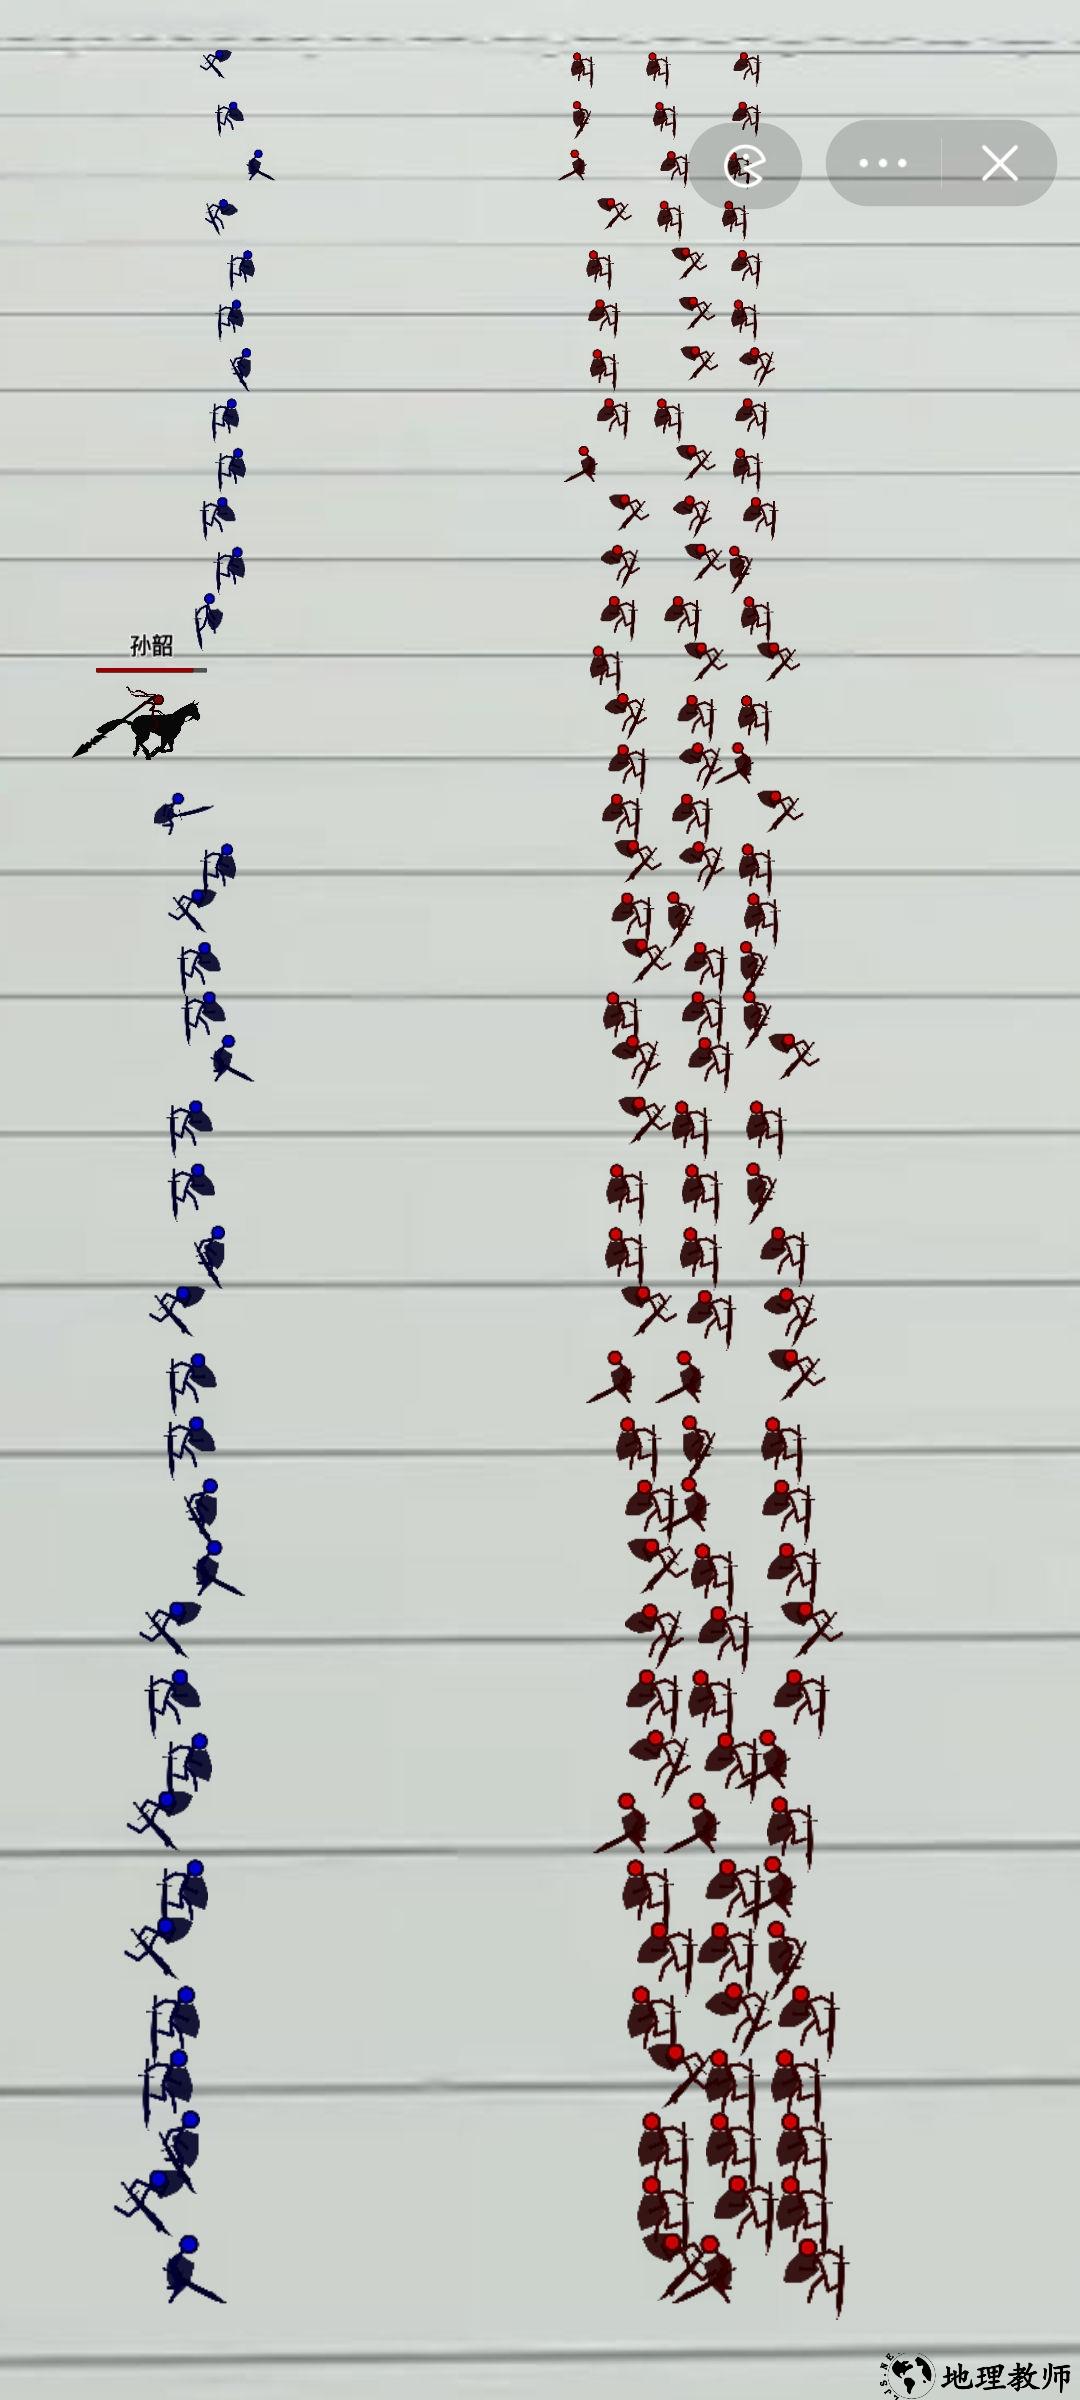 孙韶
地理教师